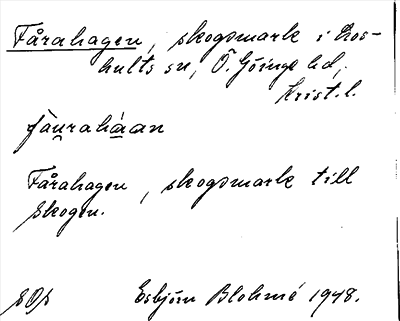 Fårahagen, skogsmark i Los-
hults sn, Ö. Göinge hd,
Krist. l.
fàuraháan
Fårahagen, skogsmark till
Skogen.
Esbjörn Blohmé 1948.